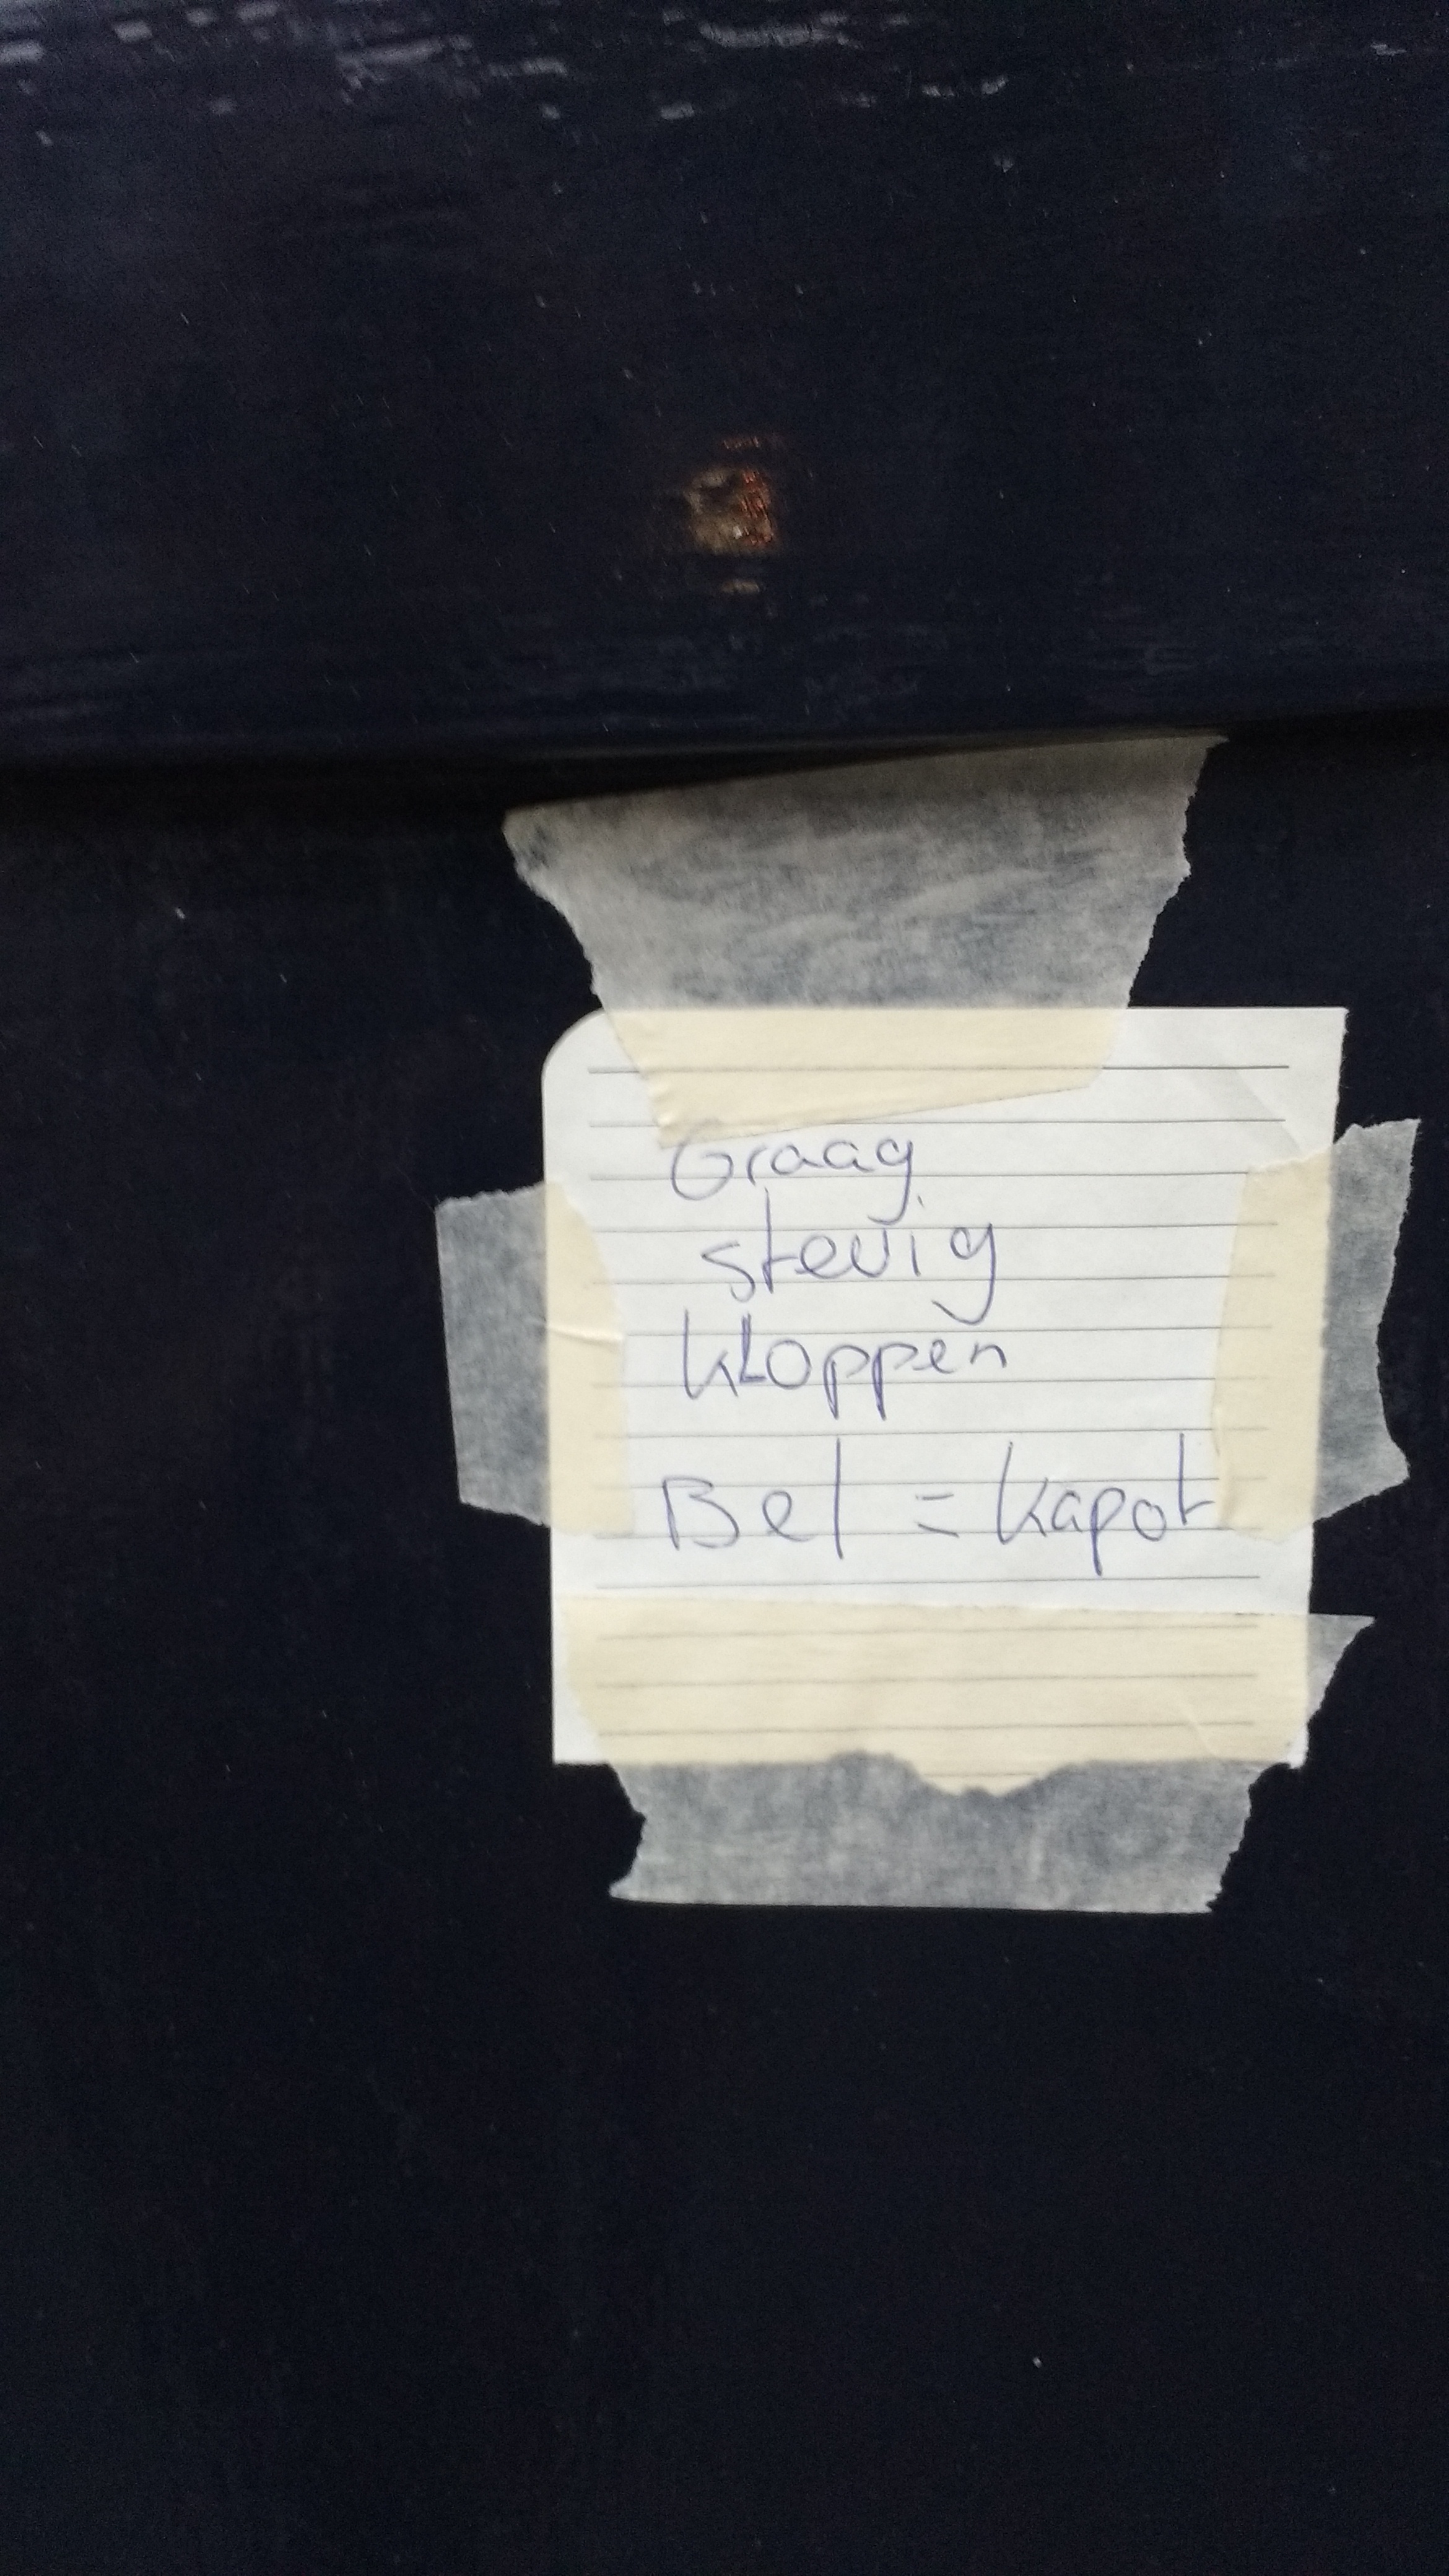 Graag
stevig
kloppen
Bel = kapot